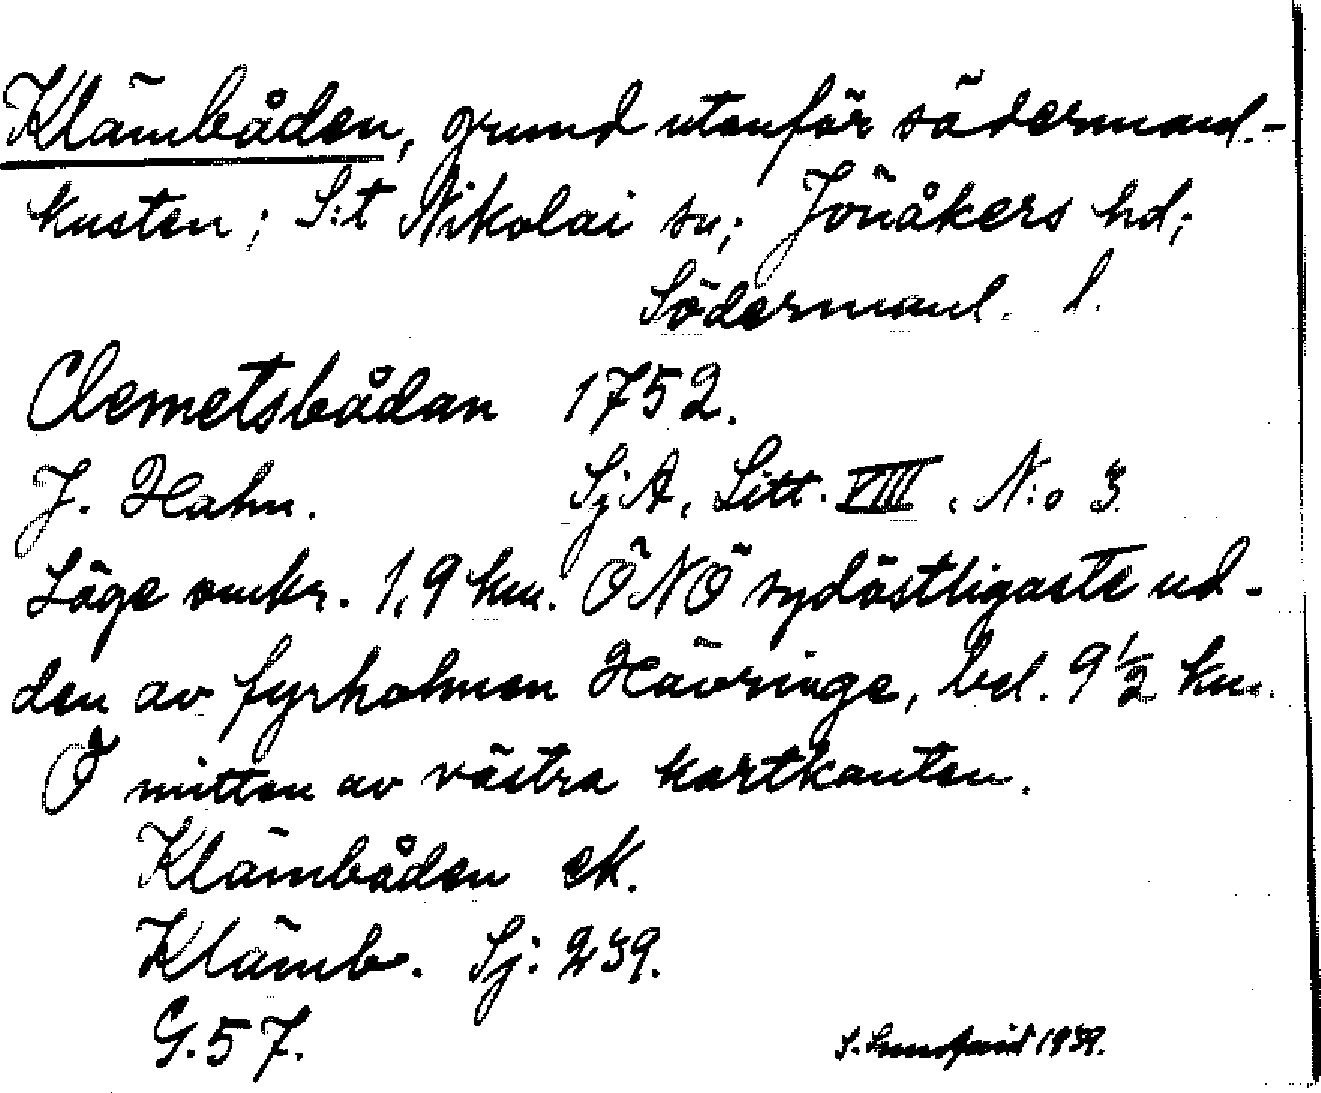 Klämbåden, grund utanför södermanl.-
kusten; S:t Nikolai sn; Jönåkers hd;
Södermanl. l.
Clemetsbådan 1752.
J. Hahn. SjA, Litt. VIII, N:o 3
Läge omkr. 1,9 km. ÖNÖ sydöstligaste ud-
den av fyrholmen Hävringe, bel. 9 1/2 km.
Ö mitten av västra kartkanten.
Klämbåden ek.
Klämb. Sj: 239.
G. 57.
S. 1939.